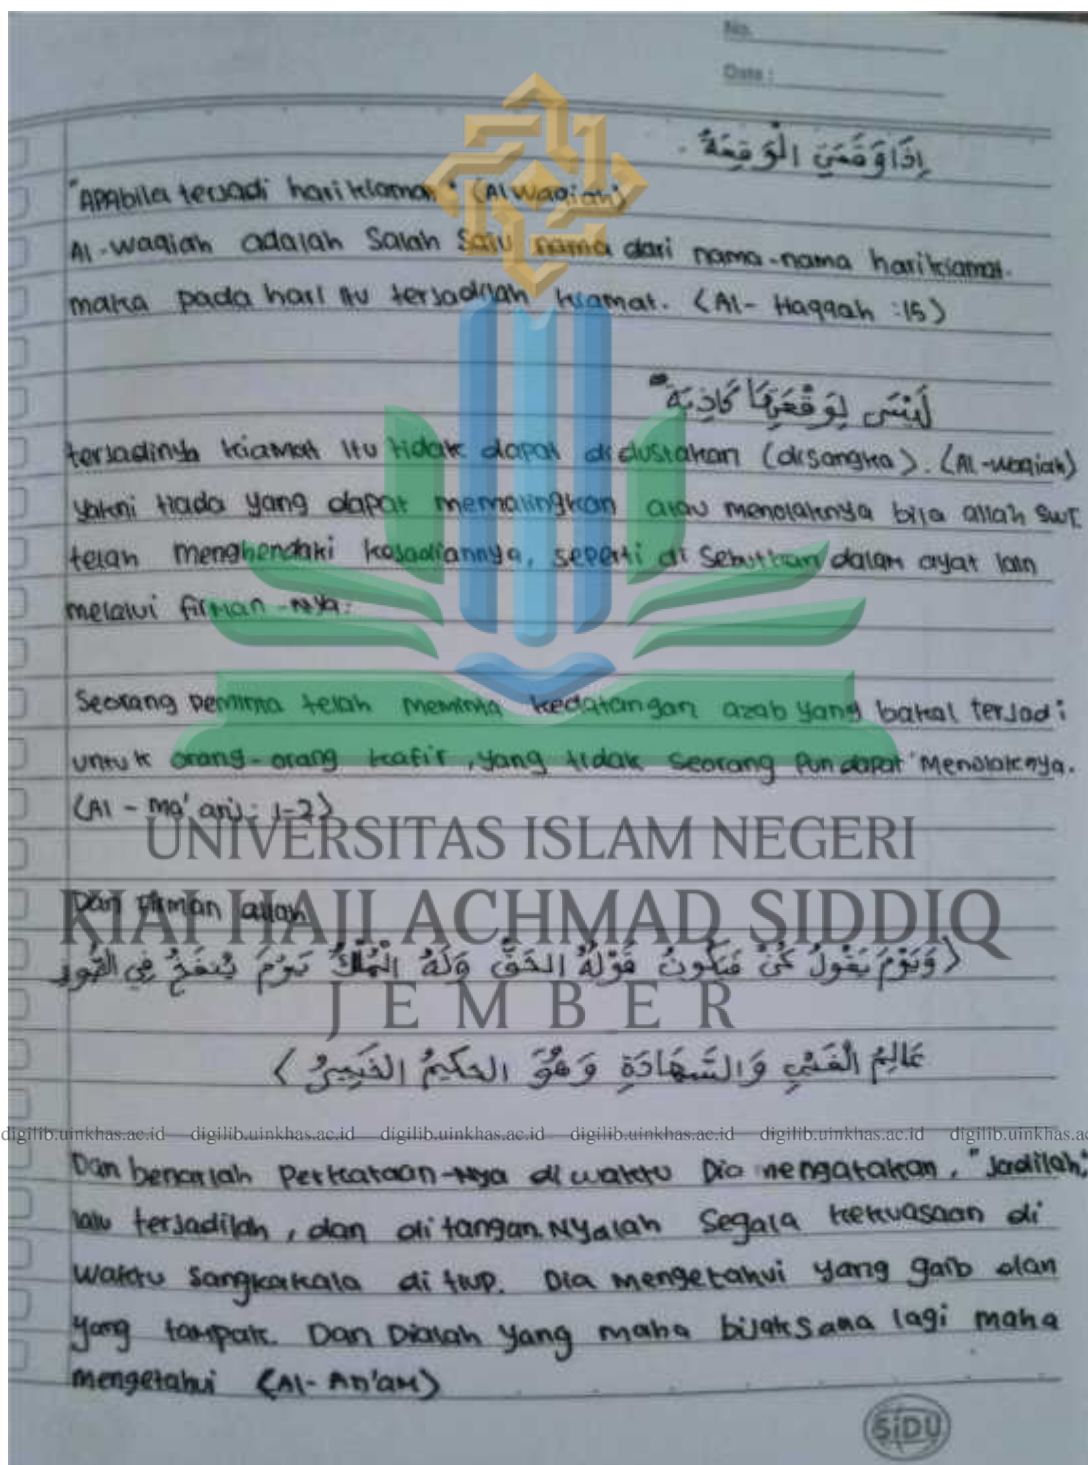 No.
Date :
اِذَا وَقَعَتِ الْوَقِعَةُ .
"APAbila terjadi hari kiamat" (Al waqiah)
Al-waqiah adalah Salah Satu nama dari nama-nama hari kiamat.
maka pada hari itu terjadilah kiamat. (Al- Haqqah :15)
لَيْسَ لِوَقْعَتِهَا كَاذِبَةٌ
terjadinya kiamat itu tidak dapat didustakan (disangka). (Al-waqiah)
yakni tiada yang dapat memalingkan atau menolaknya bila allah swt.
telah menghendaki kejadiannya, seperti di sebutkan dalam ayat lain
melalui firman-Nya:
Seorang peminta telah meminta kedatangan azab yang bakal terjadi
untuk orang-orang kafir, yang tidak seorang pun dapat menolaknya.
(Al - ma'arij: 1-2)
UNIVERSITAS ISLAM NEGERI
Dan firman allah
KIAI HAJI ACHMAD SIDDIQ
(وَيَوْمَ يَقُولُ كُنْ فَيَكُونُ قَوْلُهُ الحَقُّ وَلَهُ الْمُلْكُ يَوْمَ يُنْفَخُ فِي الصُّورِ
JEMBER
عَالِمُ الْغَيْبِ وَالشَّهَادَةِ وَهُوَ الحَكِيمُ الخَبِيرُ )
digilib.uinkhas.ac.id digilib.uinkhas.ac.id digilib.uinkhas.ac.id digilib.uinkhas.ac.id digilib.uinkhas.ac.id digilib.uinkhas.a
Dan benarlah Perkataan-Nya di waktu Dia mengatakan, "Jadilah,"
lalu terjadilah, dan di tangan.Nyalah segala kekuasaan di
waktu sangkakala di tiup. Dia mengetahui yang gaib dan
yang tampak. Dan Dialah yang maha bijaksana lagi maha
mengetahui (Al- An'am)
SiDU